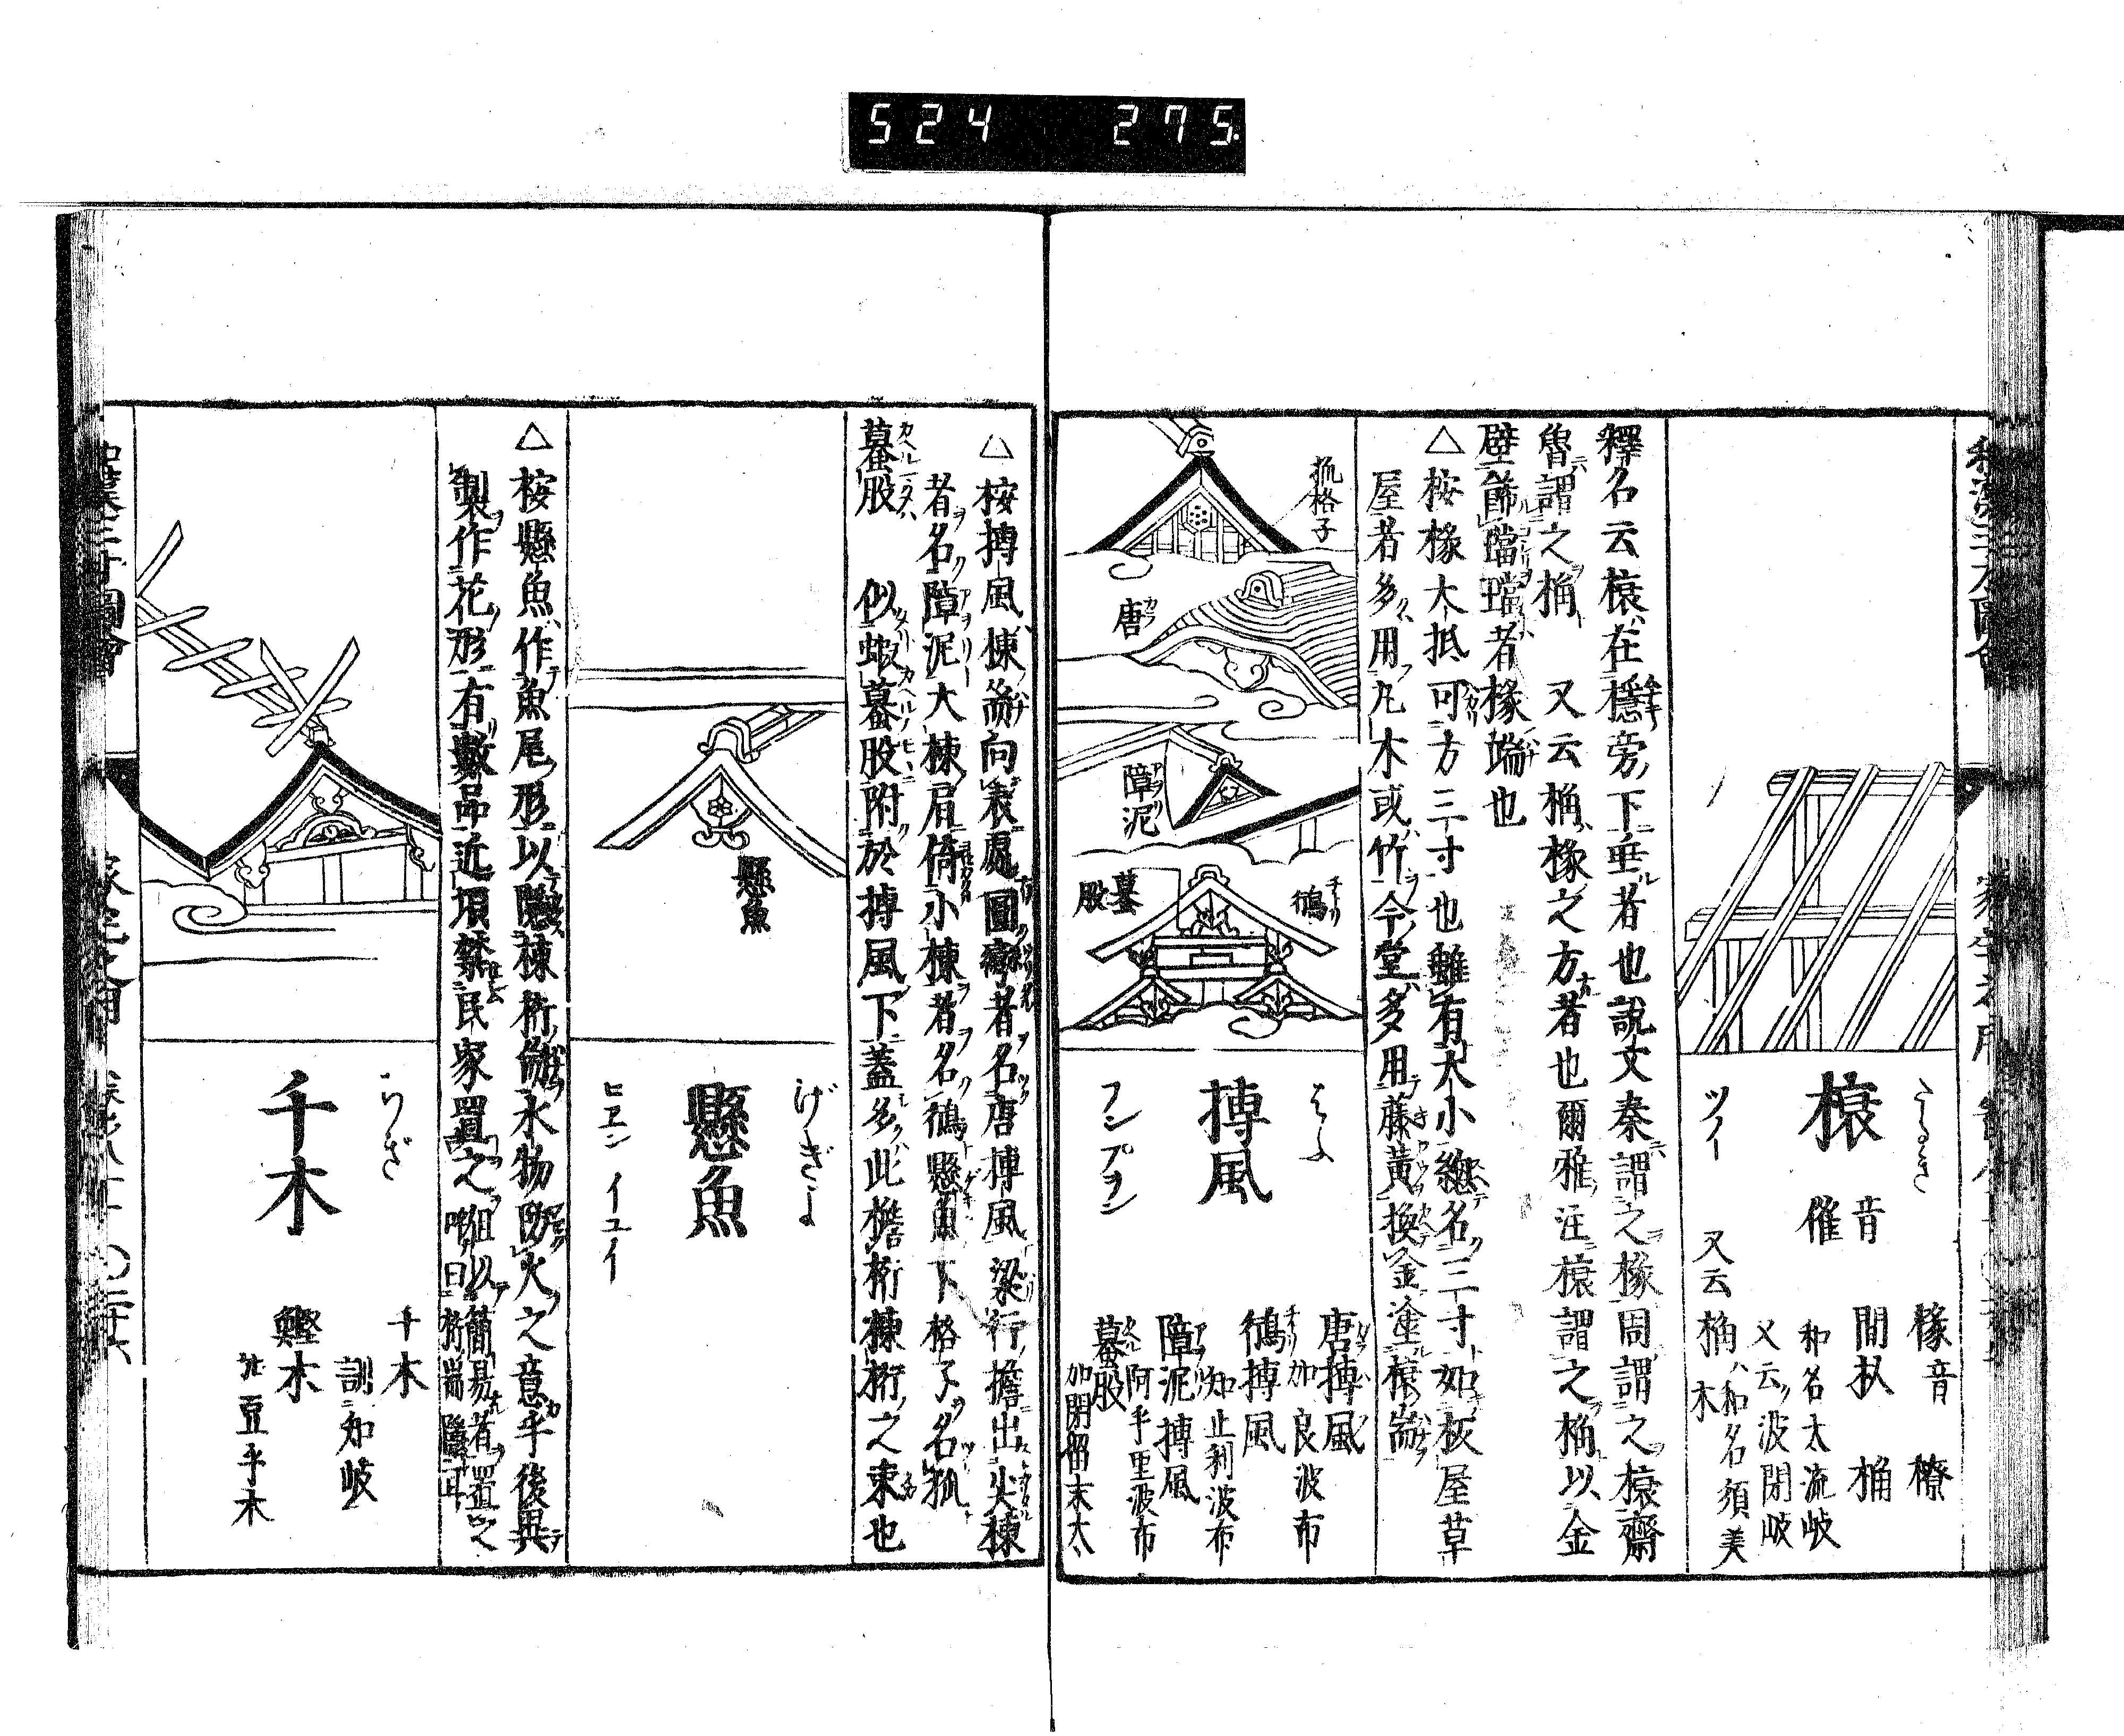 524 275.
たるき
榱
音
催
橡音 橑
間杁 桷
和名太流岐
又云波閉岐
又云桷
和名須美
木
ツイ
釋名云榱在檼旁下垂者也說文秦謂之椽周謂之榱齊
魯謂之桷 又云桷椽之方者也爾雅注榱謂之桷以金
壁飾璫者椽端也
△按椽大抵可方三寸也雖有大小總名三寸如板屋草
屋者多用丸木或竹今堂多用藤黃換金塗榱耑
狐格子
唐
障泥
鵆
蟇股
はふ
搏風
フンプヲン
唐搏風
加良波布
鵆搏風
知止利波布
障泥搏風
阿乎里波布
蟇股
加閉留末太
△按搏風棟耑向表處圓彎者名唐搏風梁行擔出尖棟
者名障泥大棟肩倚小棟者名鵆懸魚下格子名狐
蟇股 似蝦蟇股附於搏風下蓋多此檐桁棟桁之束也
懸魚
げぎよ
懸魚
ヒエン イユイ
△按懸魚作魚尾形以隱棟桁耑水物防火之意乎後異
製作花形有數品近頃禁民家置之但以簡易者置之
唯曰桁耑隱耳
ちぎ
千木
千木
訓知岐
鰹木
豆乎木